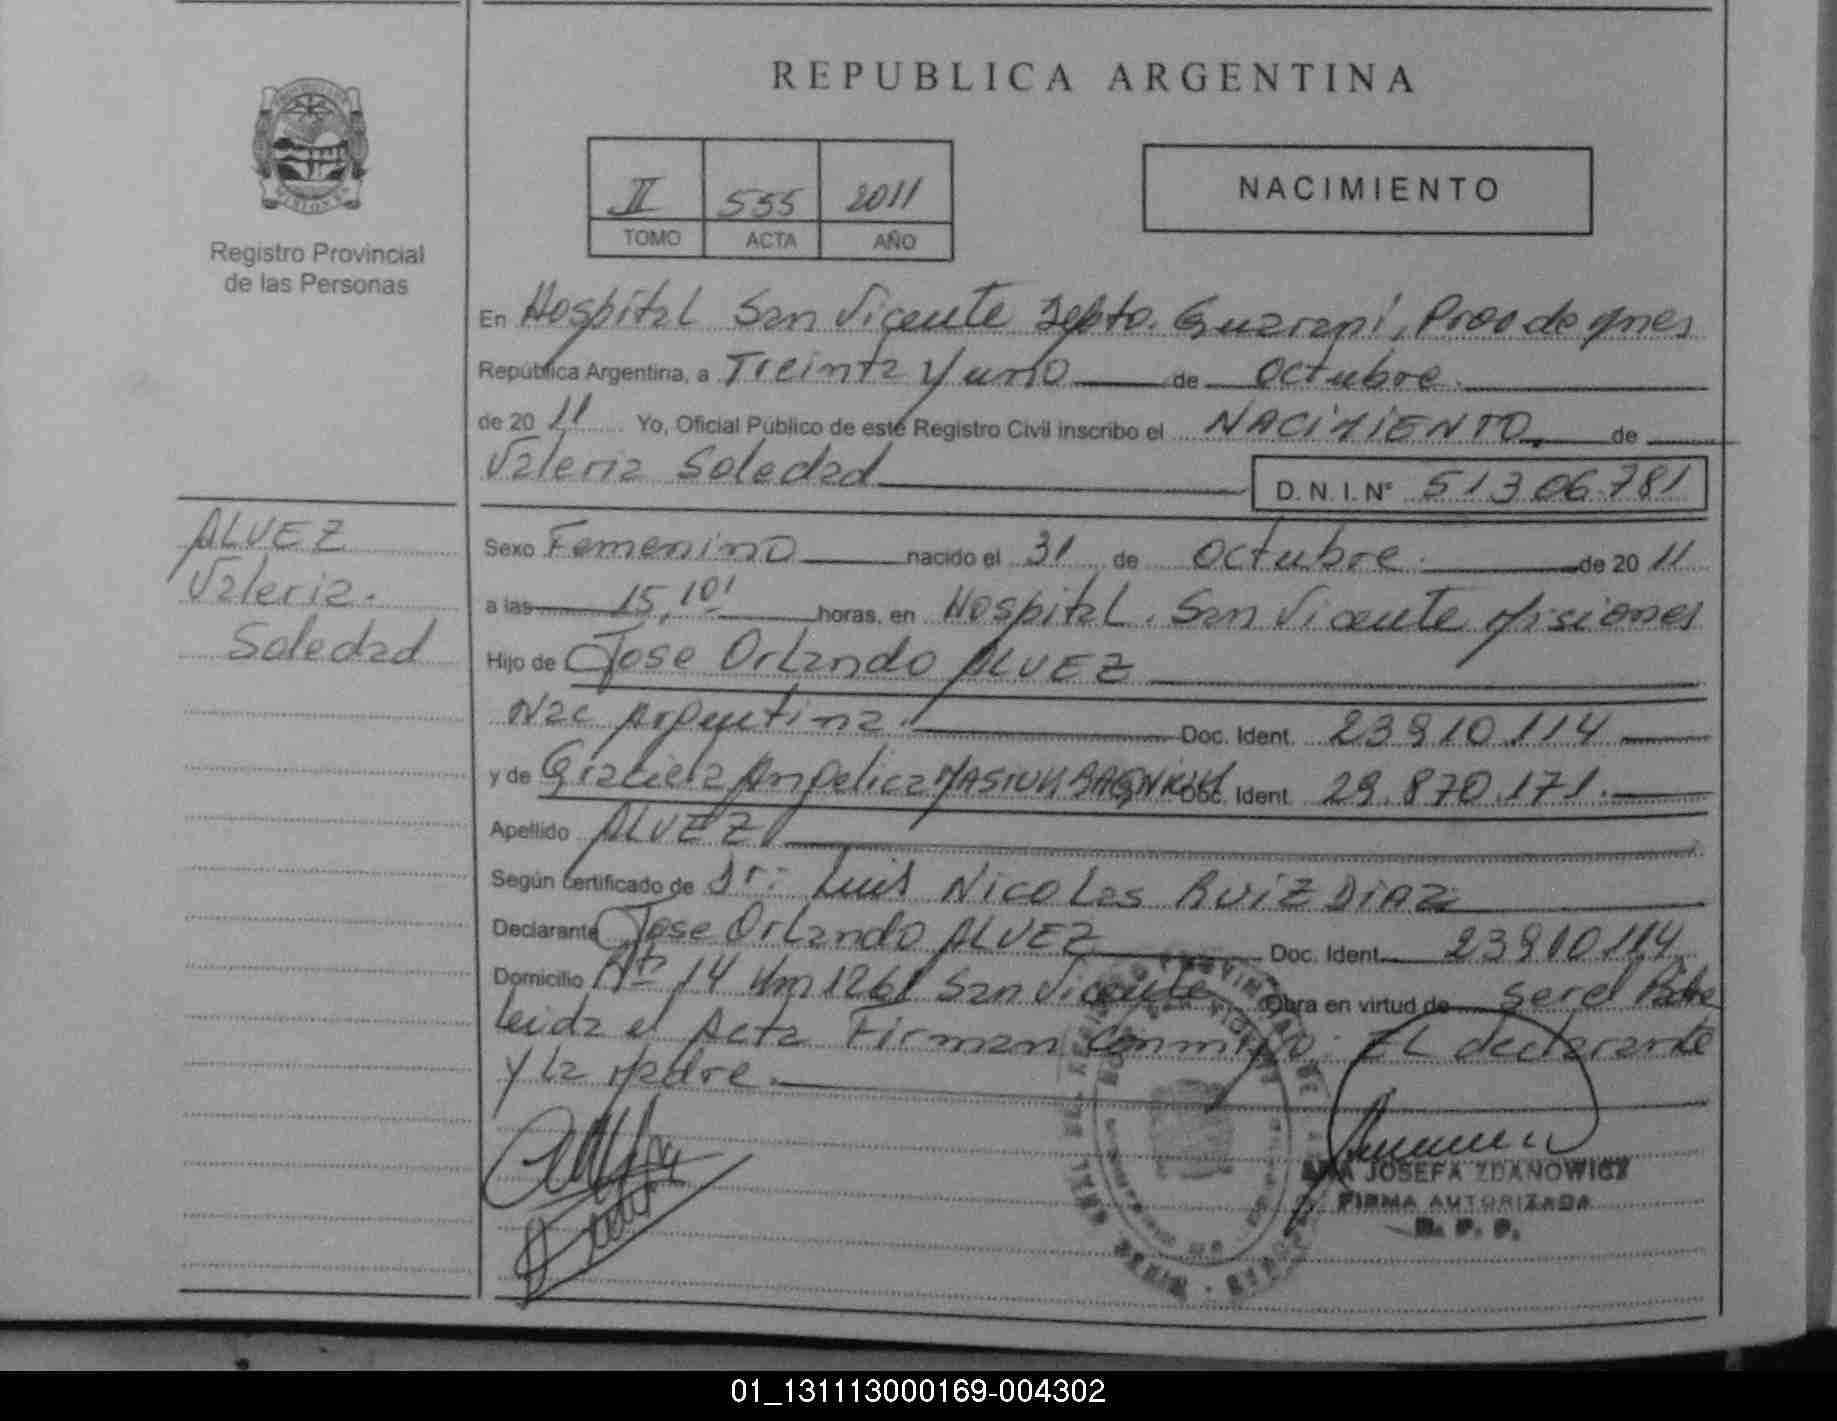 REPUBLICA ARGENTINA
II 555 2011
TOMO ACTA AÑO
NACIMIENTO
Registro Provincial
de las Personas
En Hospital San Vicente Depto. Guarani, Prov de Mnes
República Argentina, a Treinta y uno de Octubre
de 20 11 Yo, Oficial Público de este Registro Civil inscribo el NACIMIENTO de
Valeria Soledad D. N. I. N° 51306781
ALVEZ
Valeria.
Soledad
Sexo Femenino nacido el 31 de Octubre de 20 11
a las 15,10' horas, en Hospital. San Vicente Misiones
Hijo de Jose Orlando ALVEZ
Nac Argentina. Doc. Ident. 23910.114
y de Graciela Angelica Doc. Ident. 29.870.171.
Apellido ALVEZ
Según certificado de Dr: Luis Nicolas RUIZ DIAZ
Declarante Jose Orlando ALVEZ Doc. Ident. 23910114
Domicilio Rta 14 Km 1261 San Vicente Obra en virtud de ser el Padre
Leida el Acta Firman Conmigo: EL declarante
y La Madre.
ANA JOSEFA ZDANOWICZ
FIRMA AUTORIZADA
R. P. P.
01_131113000169-004302